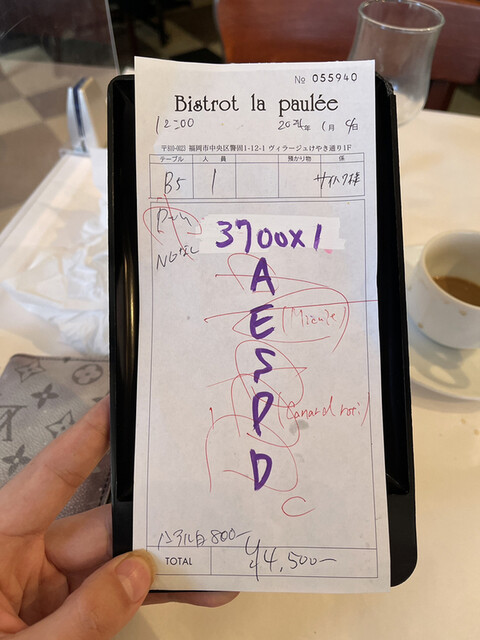 No 055940
Bistrot la paulée
12:00 2024年 1月 4日
〒810-0023 福岡市中央区警固1-12-1 ヴィラージュけやき通り1F
テーブル 人員 預かり物 係
B5 1
NGなし
3700×1
A
E
(Mizute)
S
P
(Canard roti)
D
C
ハウス白 800-
TOTAL ¥4,500-